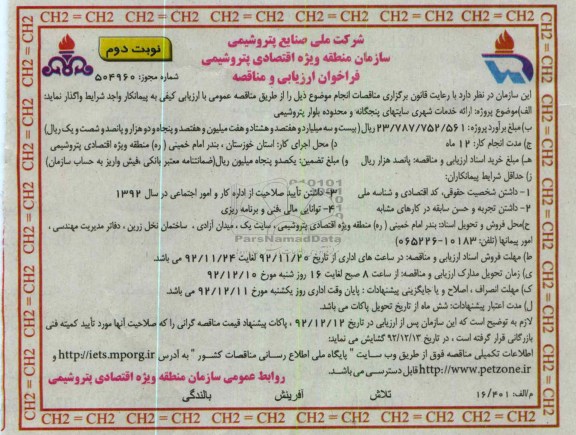 شرکت ملی صنایع پتروشیمی
سازمان منطقه ویژه اقتصادی پتروشیمی
فراخوان ارزیابی و مناقصه
نوبت دوم
شماره مجوز: ۵۰۴۹۶۰
این سازمان در نظر دارد با رعایت قانون برگزاری مناقصات انجام موضوع ذیل را از طریق مناقصه عمومی با ارزیابی کیفی به پیمانکار واجد شرایط واگذار نماید:
الف) موضوع پروژه: ارائه خدمات شهری سایتهای پنجگانه و محدوده بلوار پتروشیمی
ب) مبلغ برآورد پروژه: ۲۳/۷۸۷/۷۵۲/۵۶۱ ریال (بیست و سه میلیارد و هفتصد و هشتاد و هفت میلیون و هفتصد و پنجاه و دو هزار و پانصد و شصت و یک ریال)
ج) مدت انجام کار: ۱۲ ماه د) محل اجرای کار: استان خوزستان، بندر امام خمینی (ره) منطقه ویژه اقتصادی پتروشیمی
هـ) مبلغ خرید اسناد ارزیابی و مناقصه: پانصد هزار ریال و) مبلغ تضمین: یکصدو پنجاه میلیون ریال (ضمانتنامه معتبر بانکی، فیش واریز به حساب سازمان)
ز) حداقل شرایط پیمانکاران:
۱- داشتن شخصیت حقوقی، کد اقتصادی و شناسه ملی ۳- داشتن تأیید صلاحیت از اداره کار و امور اجتماعی در سال ۱۳۹۲
۲- داشتن تجربه و حسن سابقه در کارهای مشابه ۴- توانایی مالی، فنی و برنامه ریزی
ح) محل فروش و تحویل اسناد: بندر امام خمینی (ره) منطقه ویژه اقتصادی پتروشیمی، سایت یک، میدان آزادی، ساختمان نخل زرین، دفاتر مدیریت مهندسی، امور پیمانها (تلفن: ۱۰۱۸۳-۰۶۵۲۲۶)
ط) مهلت فروش اسناد ارزیابی و مناقصه: در ساعت های اداری از تاریخ ۹۲/۱۱/۲۰ لغایت ۹۲/۱۱/۲۴ می باشد.
ی) زمان تحویل مدارک ارزیابی و مناقصه: از ساعت ۸ صبح لغایت ۱۶ روز شنبه مورخ ۹۲/۱۲/۱۰
ک) مهلت انصراف، اصلاح و یا جایگزینی پیشنهادات: پایان وقت اداری روز یکشنبه مورخ ۹۲/۱۲/۱۱ می باشد.
ل) مدت اعتبار پیشنهادات: شش ماه از تاریخ تحویل پاکات می باشد.
لازم به توضیح است که این سازمان پس از ارزیابی در تاریخ ۹۲/۱۲/۱۲، پاکات پیشنهاد قیمت مناقصه گرانی را که صلاحیت آنها مورد تأیید کمیته فنی بازرگانی قرار گرفته است، در تاریخ ۹۲/۱۲/۱۳ گشایش می نماید:
اطلاعات تکمیلی مناقصه فوق از طریق وب سایت " پایگاه ملی اطلاع رسانی مناقصات کشور" به آدرس http://iets.mporg.ir و
http://www.petzone.ir قابل دسترسی می باشد.
روابط عمومی سازمان منطقه ویژه اقتصادی پتروشیمی
م/الف: ۱۶/۴۰۱ تلاش آفرینش بالندگی
ParsNamadData